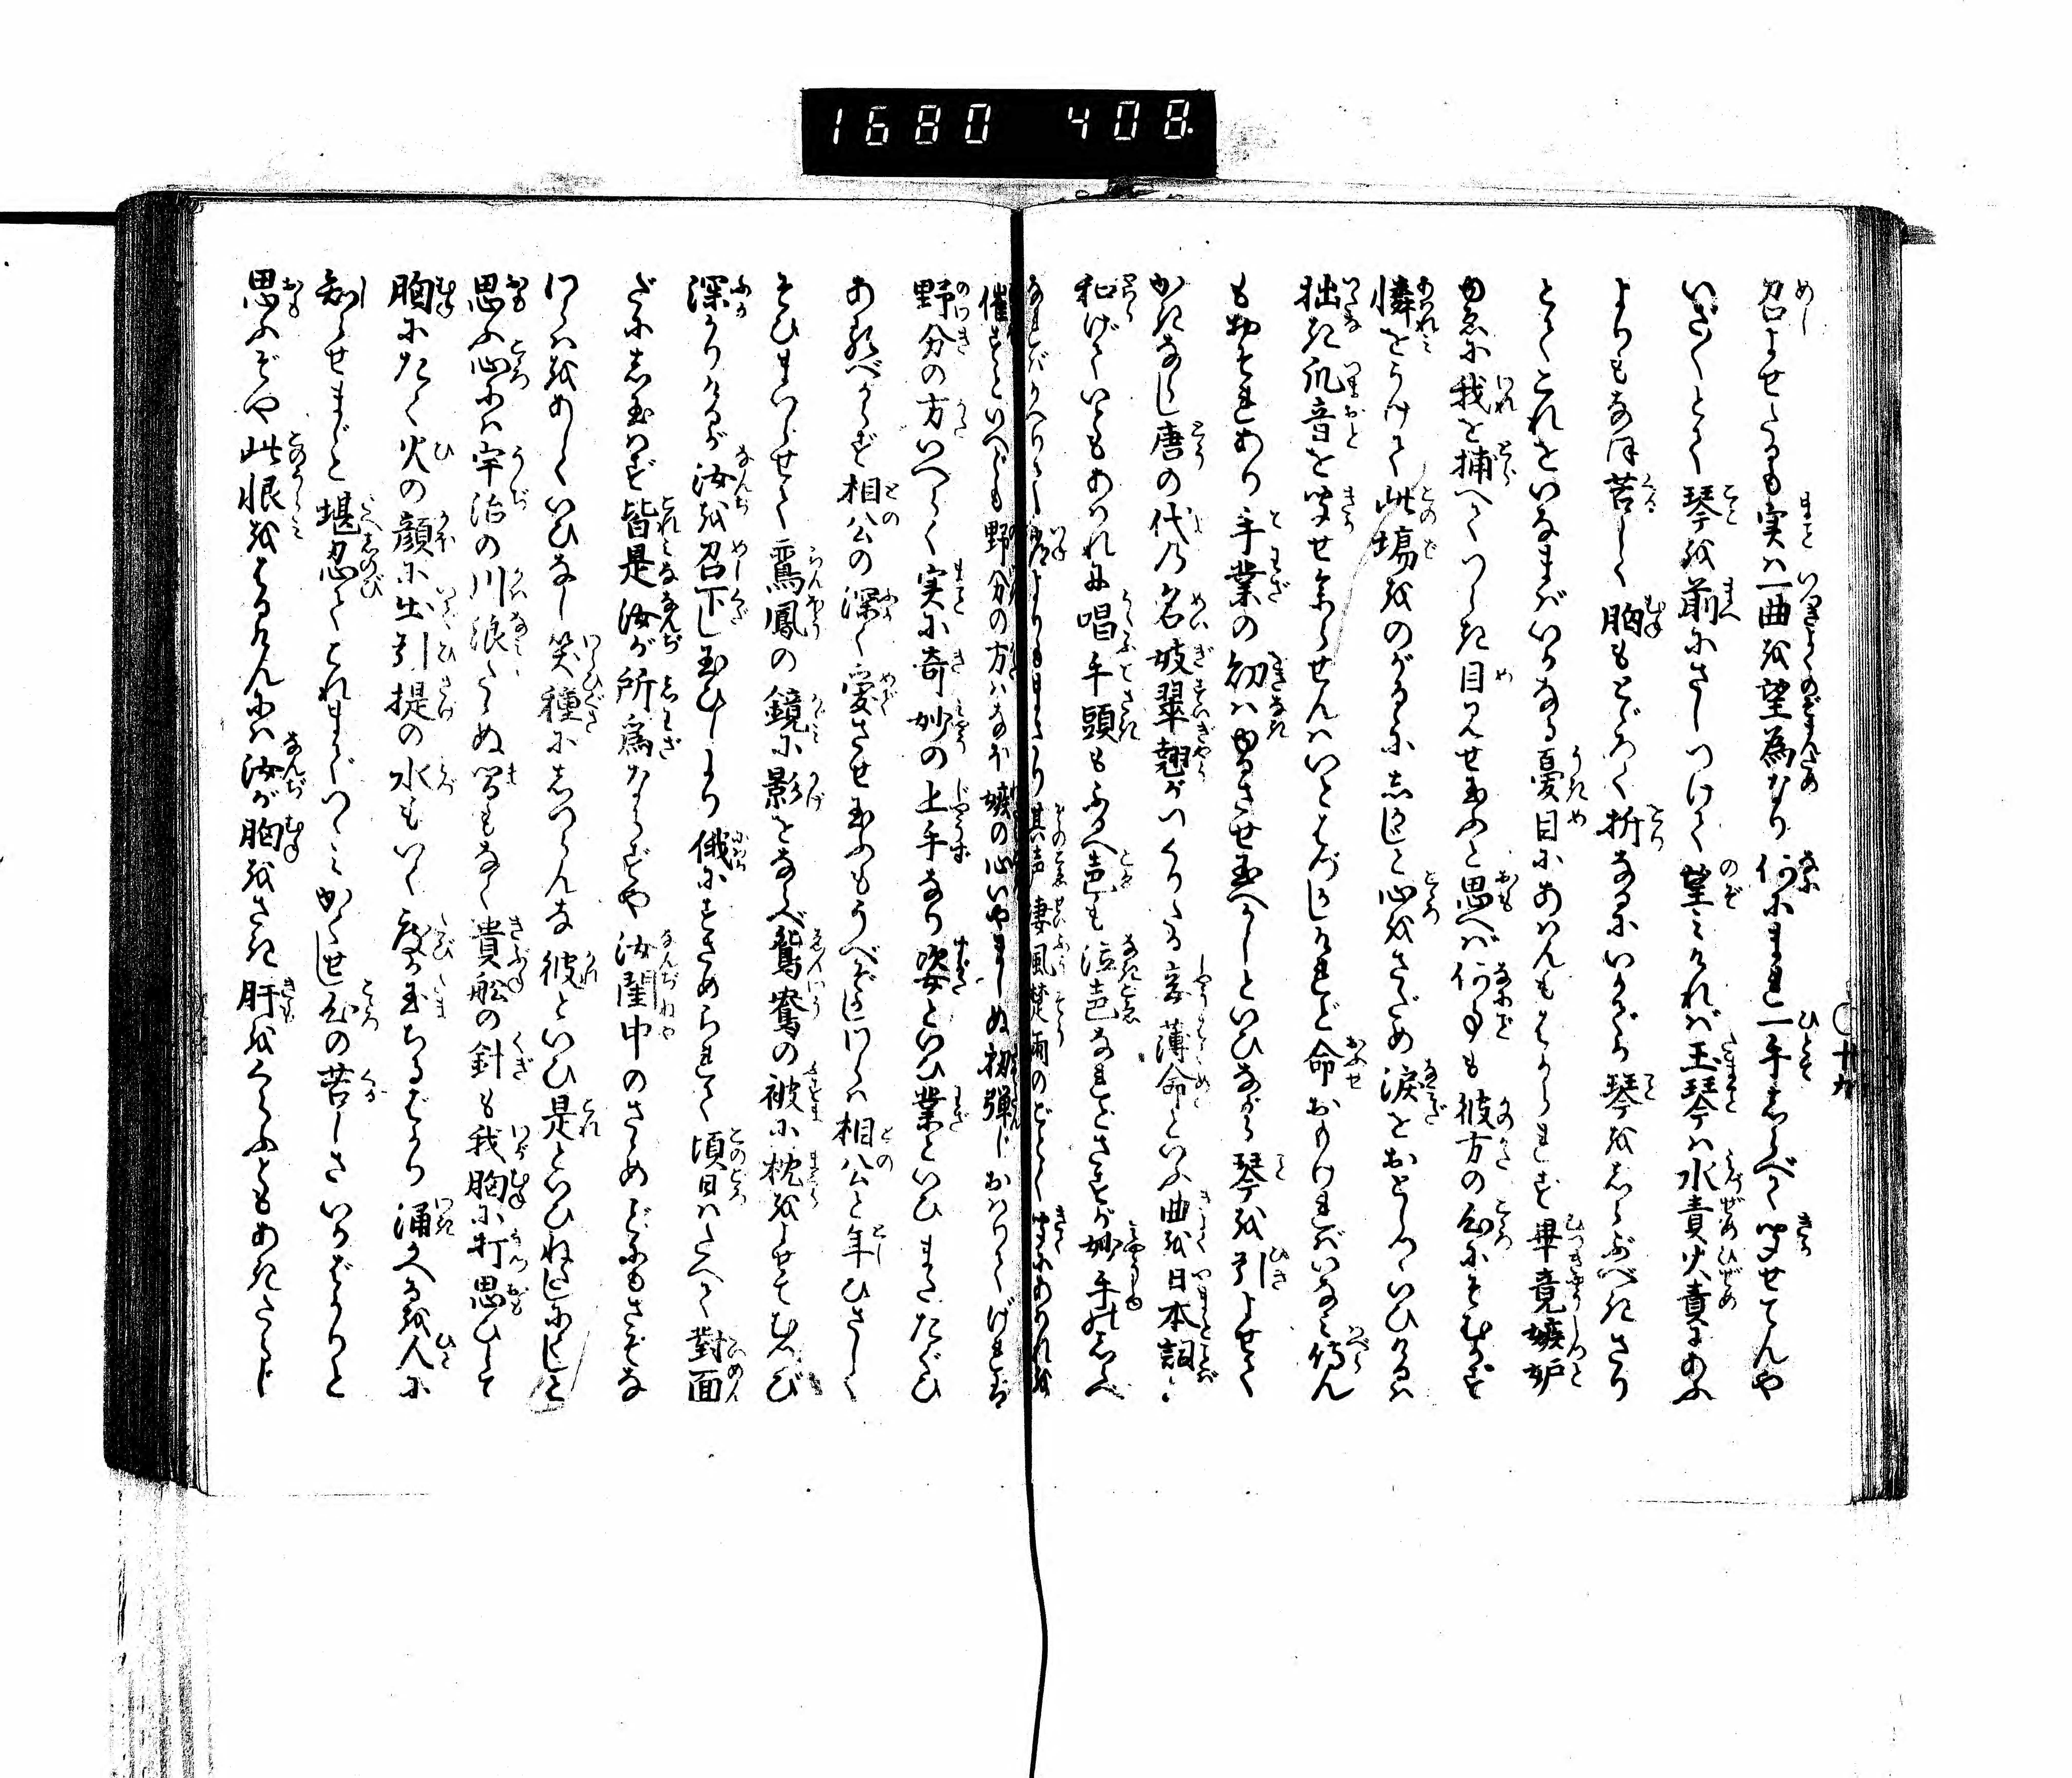 1680 408.
〇十九
召よせたるも実は一曲を望為なり何にまれ一手しらべて聞せてんや
いざ〳〵とて琴を前にさしつけて望みければ玉琴は水責火責にあふ
よりもなほ苦しく胸もとどろく折なるにいかでか琴をしらぶべきさり
とてこれをいなまばいかなる憂目にあはんもはかられず畢竟嫉妬
ゆゑに我を捕へてつらき目見せ玉ふと思へば何事も彼方の心にそむかず
憐をうけて此場をのがるにしかじと心をさだめ涙をおとしていひけるは
拙き爪音を聞せ参らせんはいとはづかしけれど命おもければいなみ侍らん
もおそれあり手業の幼はゆるさせ玉へかしといひながら琴を引よせて
かきならし唐の代の名妓翠翹がつくりたる妾薄命といふ曲を日本詞に
和げていともあはれに唱手頭もふるへ声も泣声なれどさすが妙手のしらべ
なればかへりて常よりもまさり其声凄風楚雨のごとく聞にあはれを
催すといへども野分の方はなほ嫉の心いやましぬ初弾じおはりければ
野分の方いへらく実に奇妙の上手なり姿といひ業といひまたたぐひ
あるべからず相公の深く愛させ玉ふもうべぞかしわらは相公と年ひさしく
そひまゐらせて鸞鳳の鏡に影をならべ鴛鴦の被に枕をよせてむすび
深かりけるが汝を召下し玉ひしより俄にすさめられて頃日はたえて対面
だにし玉はず皆是汝が所為ならずや汝閨中のさゝめごとにもさぞな
わらはをあしくいひなし笑種にしつらんな彼といひ是といひねたしにくしと
思ふ心には宇治の川浪たゝぬ間もなく貴船の針も我胸に打思ひして
胸にたく火の顔に出引提の水もいく度か玉ちるばかり涌かへるを人に
知らせまじと堪忍てこれまでつゝみかくせし心の苦しさいかばかりと
思ふぞや此恨をはるけんには汝が胸をさき肝をくらふともあきたらじ